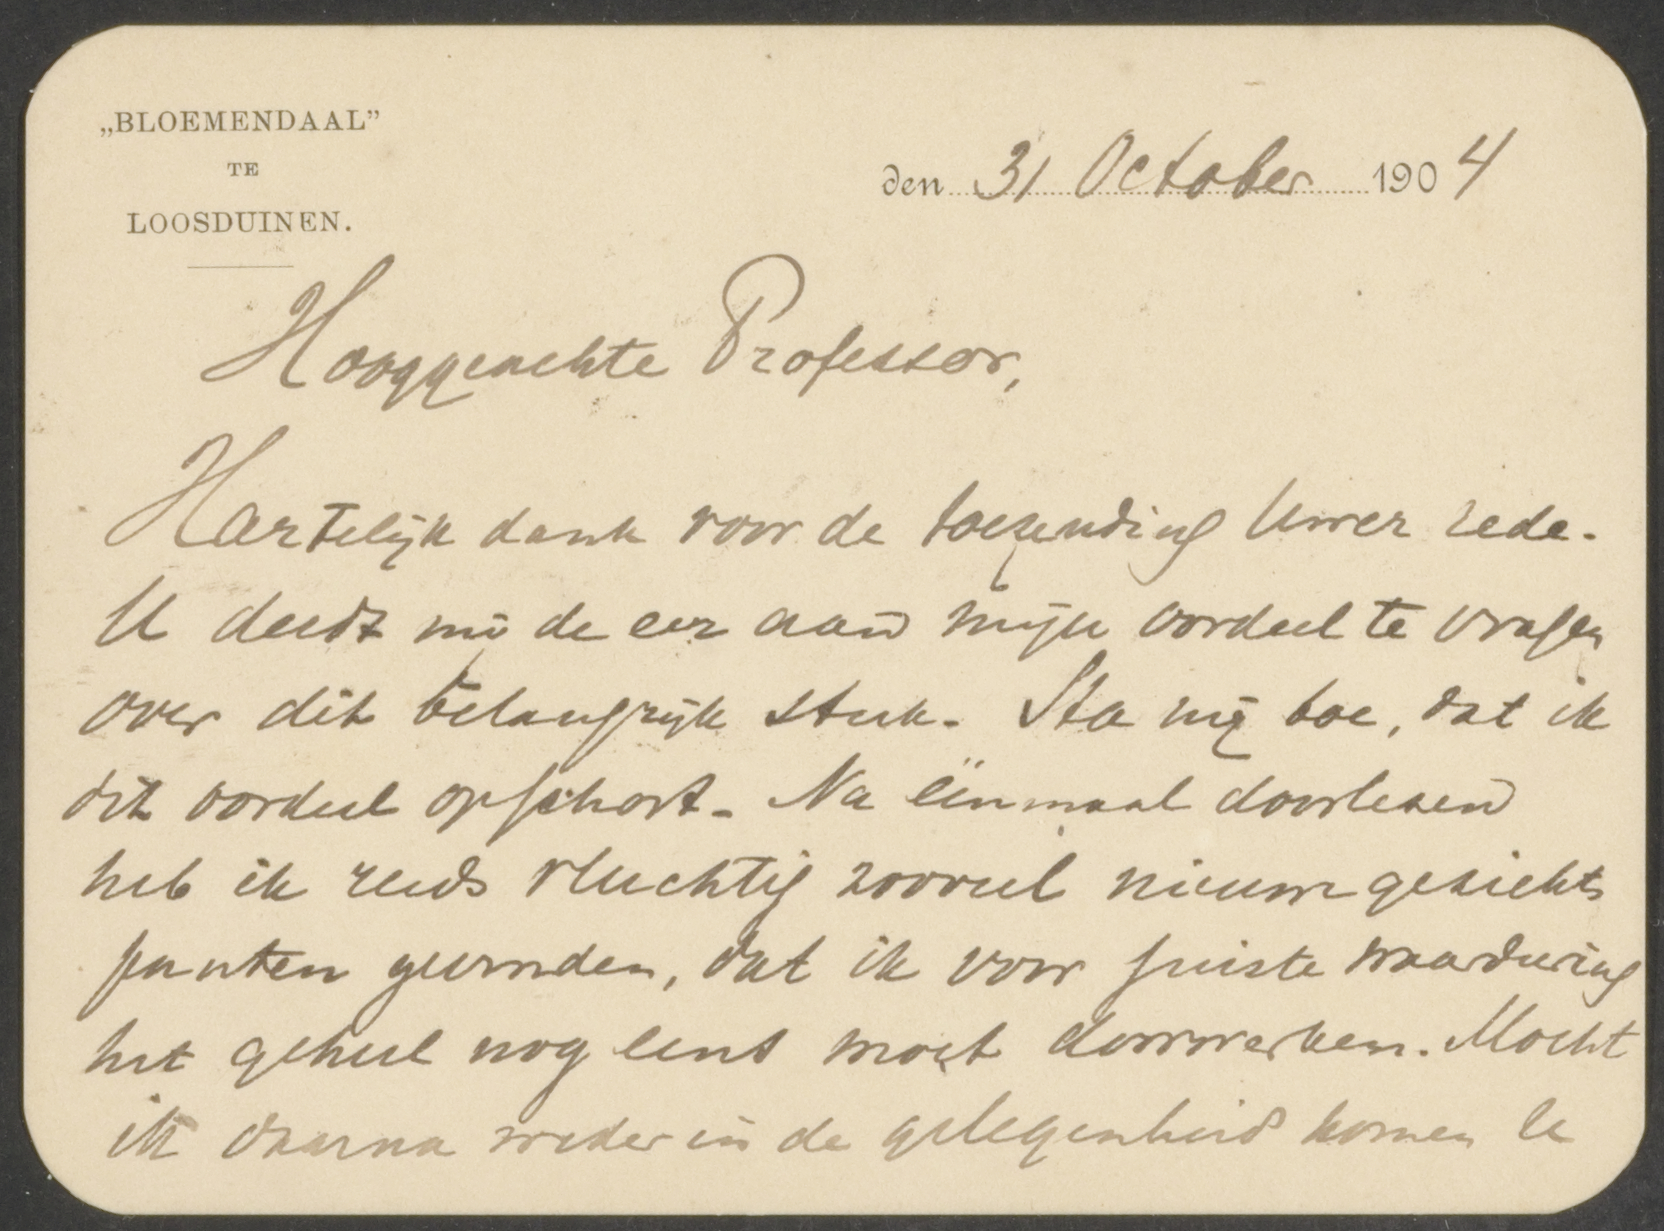 „BLOEMENDAAL”
TE
LOOSDUINEN.
den 31 October 1904
Hooggeachte Professor,
Hartelijk dank voor de toezending Uwer rede.
U deedt mij de eer aan mijn oordeel te vragen
over dit belangrijk stuk. Sta mij toe, dat ik
dit oordeel opschort. Na éénmaal doorlezen
heb ik reeds vluchtig zooveel nieuwe gezichts
punten gevonden, dat ik voor juiste waardeering
het geheel nog eens moet doorwerken. Mocht
ik daarna weder in de gelegenheid komen te